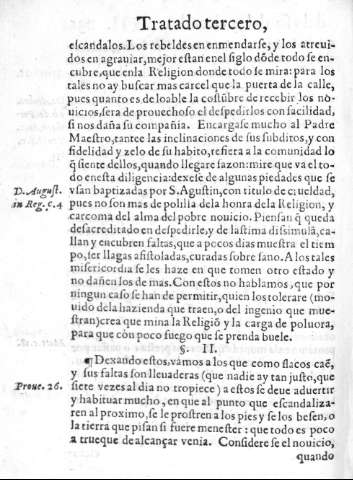 Tratado tercero,
escandalos. Los rebeldes en enmendarse, y los atreui-
dos en agrauiar, mejor estan en el siglo dõde todo se en-
cubre, que en la Religion donde todo se mira: para los
tales no ay buscar mas carcel que la puerta de la calle,
pues quanto es de loable la costũbre de recebir los no-
uicios, sera de prouechoso el despedirlos con facilidad,
si nos daña su compañia. Encargase mucho al Padre
Maestro, tantee las inclinaciones de sus subditos, y con
fidelidad y zelo de su habito, refiera a la comunidad lo
q̃ siente dellos, quando llegare sazon: mire que va el to-
do en esta diligencia: dexese de algunas piedades que se
D. August.
vsan baptizadas por S. Agustin, con titulo de crueldad,
in Reg. c. 4
pues no son mas de polilla de la honra de la Religion, y
carcoma del alma del pobre nouicio. Piensan q̃ queda
desacreditado en despedirle, y de lastima dissimulã, ca-
llan y encubren faltas, que a pocos dias muestra el tiem
po, ser llagas afistoladas, curadas sobre sano. A los tales
misericordia se les haze en que tomen otro estado y
no dañen los de mas. Con estos no hablamos, que por
ningun caso se han de permitir, quien los tolerare (mo-
uido de la hazienda que traen, o del ingenio que mue-
stran) crea que mina la Religiõ y la carga de poluora,
para que con poco fuego que se prenda buele.
§. II.
¶ Dexando estos, vamos a los que como flacos caẽ,
y sus faltas son lleuaderas (que nadie ay tan justo, que
Prou. 26.
siete vezes al dia no tropiece) a estos se deue aduertir
y habituar mucho, en que al punto que escandaliza-
ren al proximo, se le prostren a los pies y se los besen, o
la tierra que pisan si fuere menester: que todo es poco
a trueque de alcançar venia. Considere se el nouicio,
quando